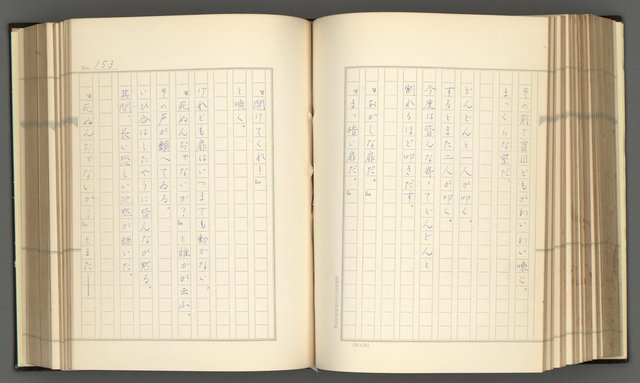 その前で盲目どもがわいわい喚く。
まっくらな室だ。
どんどんと一人が叩く。
するとまた二人が叩く。
今度は皆んな寄ってどんどんと
割れるほど叩きだす。
『おかしな扉だ。』
『まっ暗い扉だ。』
No. 153
『開けてくれ！』
と喚く。
けれども扉はいつまでも動かない。
『死ぬんぢゃないか？』と誰かが云ふ。
その声が顫へてゐる。
いひ合はしたやうに皆んなが黙る。
其間、長い恐しい沈黙が続いた。
『死ぬんぢゃないか？』とまた——